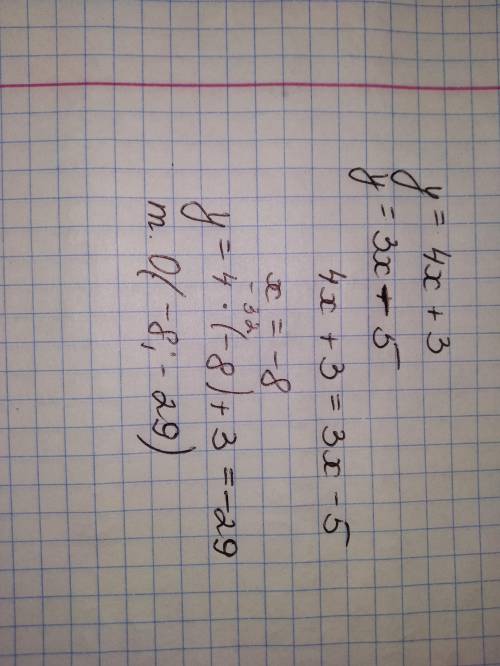 y = 4x + 3
y = 3x - 5
4x + 3 = 3x - 5
x = -8
-32
y = 4 · (-8) + 3 = -29
т. О(-8; -29)